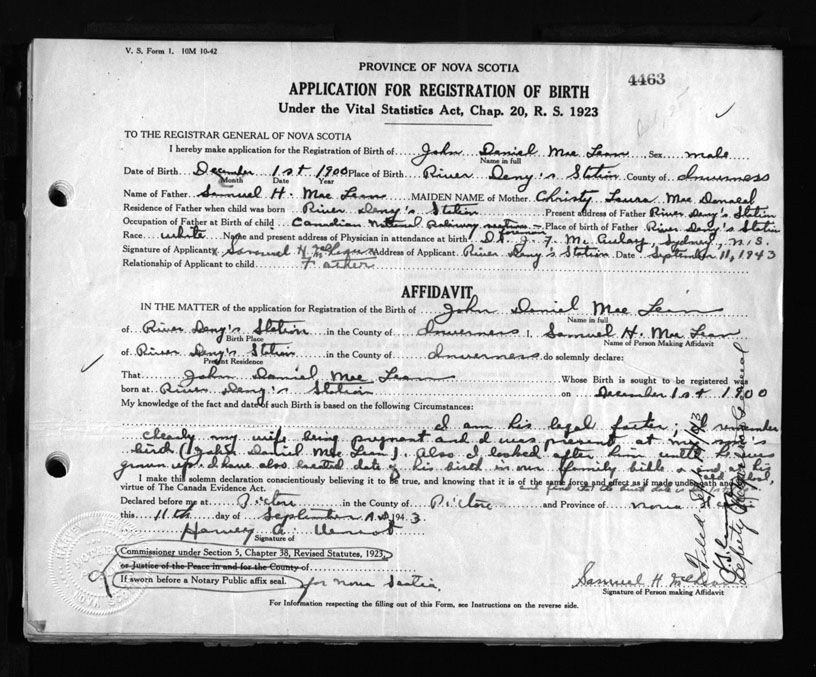 V. S. Form 1. 10M 10-42
PROVINCE OF NOVA SCOTIA
4463
APPLICATION FOR REGISTRATION OF BIRTH
Under the Vital Statistics Act, Chap. 20, R. S. 1923
TO THE REGISTRAR GENERAL OF NOVA SCOTIA
I hereby make application for the Registration of Birth of John Daniel Mac Lean Sex male
Name in full
Date of Birth December 1st 1900 Place of Birth River Deny's Station County of Inverness
Month Date Year
Name of Father Samuel H. Mac Lean MAIDEN NAME of Mother Christy Laura Mac Donald
Residence of Father when child was born River Deny's Station Present address of Father River Deny's Station
Occupation of Father at Birth of child Canadian National Railway section foreman Place of birth of Father River Deny's Station
Race white Name and present address of Physician in attendance at birth Dr. J. F. Mc Aulay, Sydney, N.S.
Signature of Applicant x Samuel H McLean Address of Applicant River Deny's Station Date September 11, 1943
Relationship of Applicant to child Father
AFFIDAVIT
IN THE MATTER of the application for Registration of the Birth of John Daniel Mac Lean
Name in full
of River Deny's Station in the County of Inverness I, Samuel H. Mac Lean
Birth Place Name of Person Making Affidavit
of River Deny's Station in the County of Inverness do solemnly declare:
Present Residence
That John Daniel Mac Lean Whose Birth is sought to be registered was
born at River Deny's Station on December 1st 1900
My knowledge of the fact and date of such Birth is based on the following Circumstances:
I am his legal father; I remember
clearly my wife being pregnant and I was present at my son's
birth (John Daniel Mac Lean). Also I looked after him until he was
grown up. I have also located date of his birth in our family bible
I make this solemn declaration conscientiously believing it to be true, and knowing that it is of the same force and effect as if made under oath and
virtue of The Canada Evidence Act.
Declared before me at Pictou in the County of Pictou and Province of Nova Scotia
this 11th day of September A.D. 1943
Harvey A.
Signature of
Commissioner under Section 5, Chapter 38, Revised Statutes, 1923,
or Justice of the Peace in and for the County of
If sworn before a Notary Public affix seal. for Nova Scotia
Samuel H McLean
Signature of Person making Affidavit
For Information respecting the filling out of this Form, see Instructions on the reverse side.
Filed
Deputy Registrar General